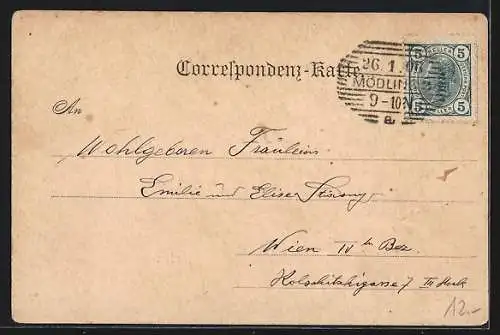 Correspondenz-Karte
26.1.06
MÖDLING
9-10V
a
5 HELLER 5
5 5
An
Wohlgeboren Fräulein
Emilie und Elise
Wien IV te Bez.
Kolschitzkigasse 7 III Stock
12.-